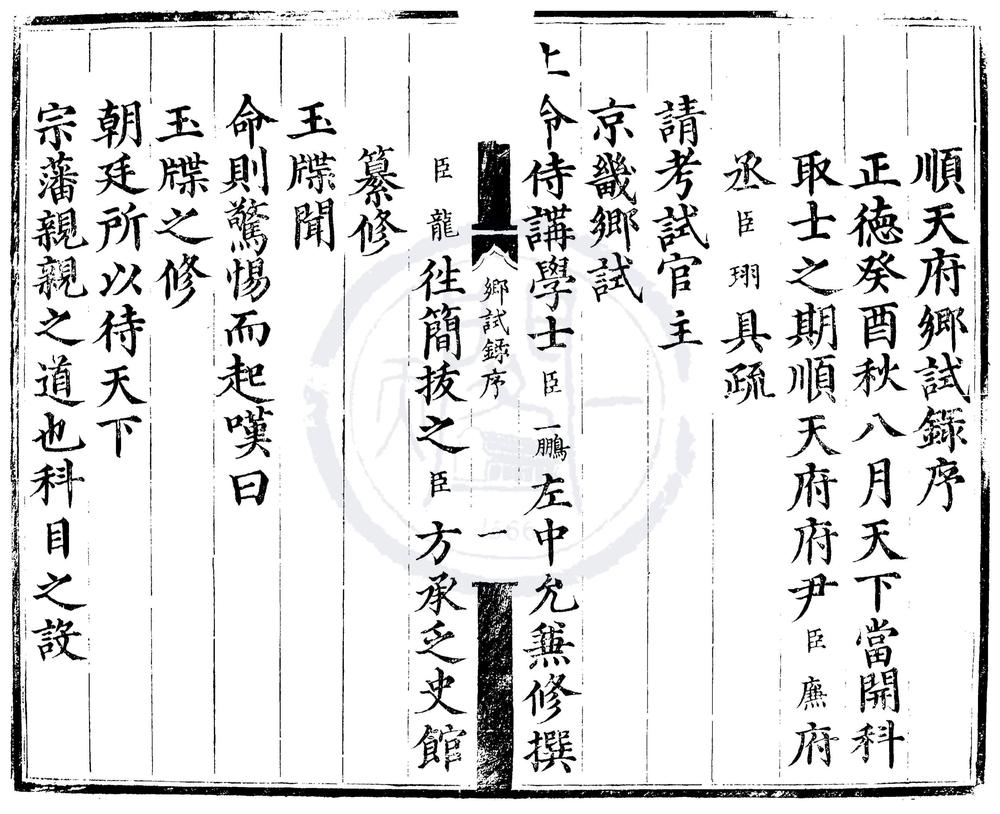 順天府鄉試錄序
正德癸酉秋八月天下當開科
取士之期順天府府尹臣廡府
丞臣珝具疏
請考試官主
京畿鄉試
上命侍講學士臣一鵬左中允兼修撰
鄉試錄序
一
臣龍徃簡拔之臣方承乏史館
纂修
玉牒聞
命則驚惕而起嘆曰
玉牒之修
朝廷所以待天下
宗藩親親之道也科目之設